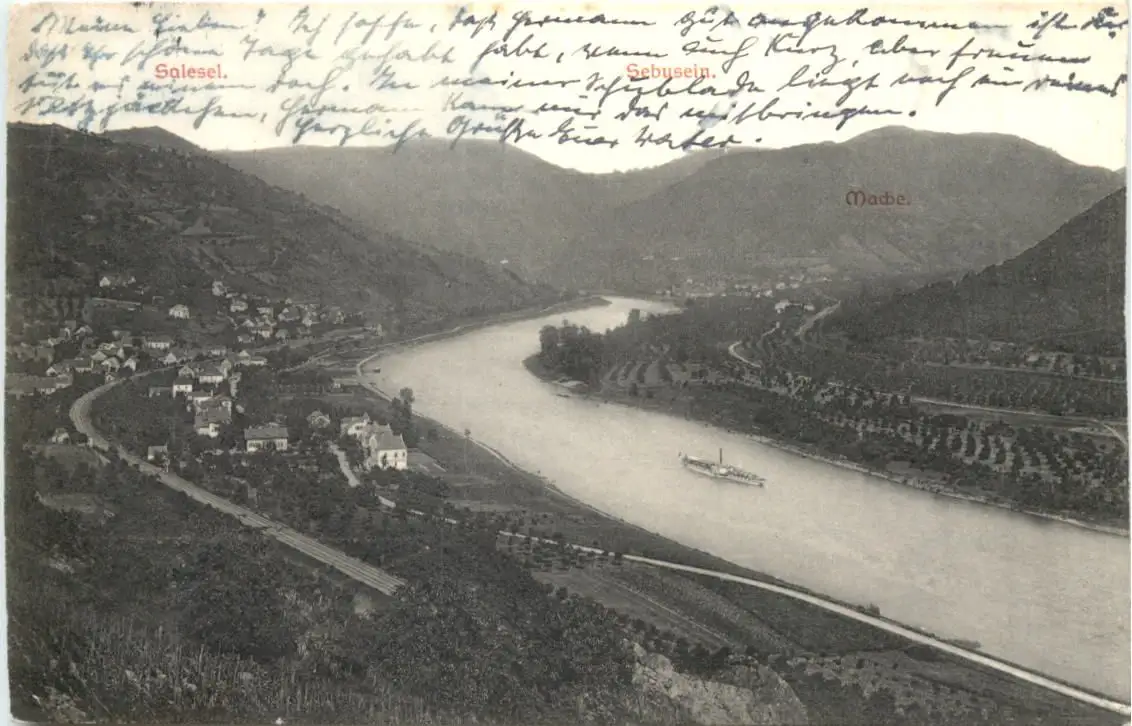 Meine Lieben! Ich hoffe, daß Hermann gut angekommen ist u.
daß Ihr schöne Tage gehabt habt, wenn auch kurz, aber freuen
Salesel. Sebusein.
tut es einem doch. In meiner Schublade liegt noch ein
Hermann kann mir das mitbringen.
Herzliche Grüße Euer Vater.
Mache.